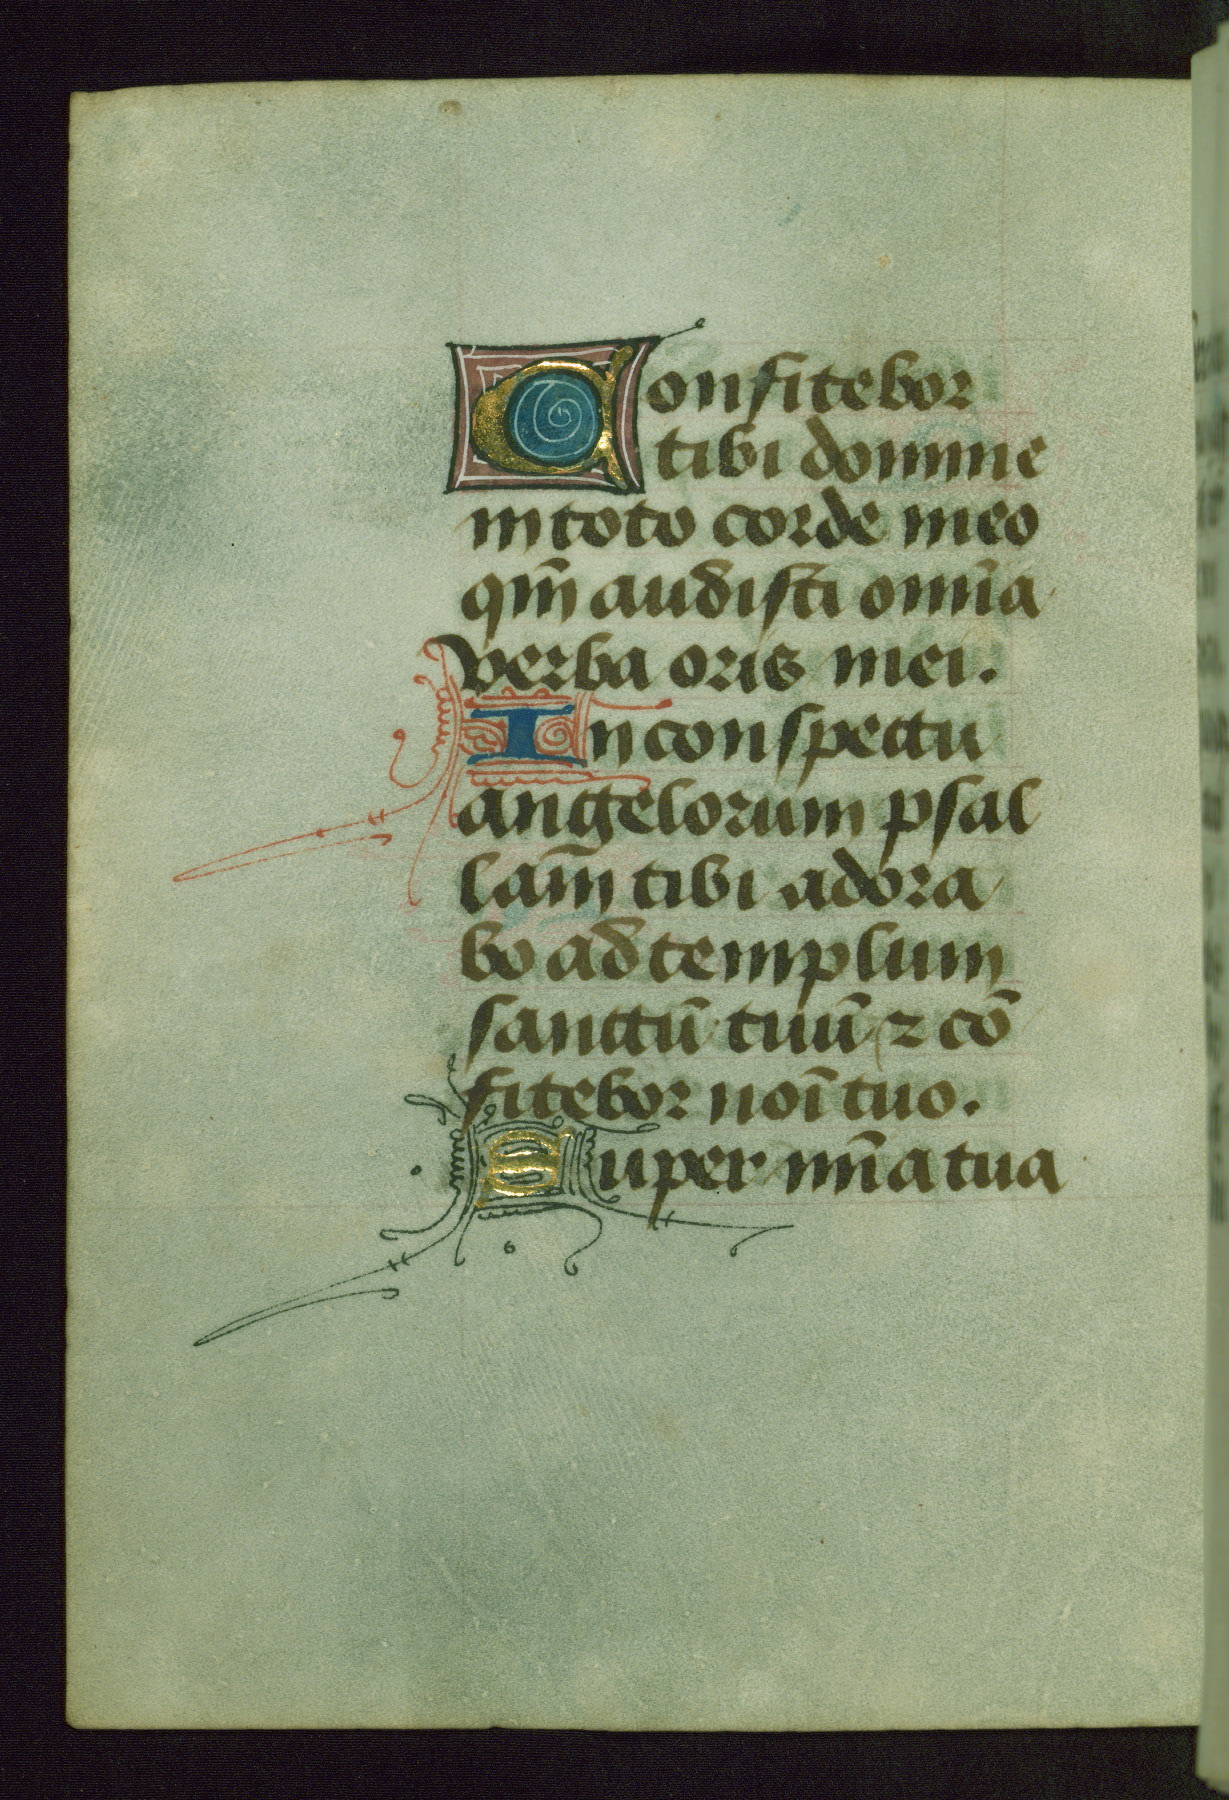 Confitebor
tibi domine
in toto corde meo
qm̄ audisti om̄ia
verba oris mei.
In conspectu
angelorum psal
lam̄ tibi adora
bo ad templum
sanctū tuū ⁊ cō
fitebor noī tuo.
Super mīa tua